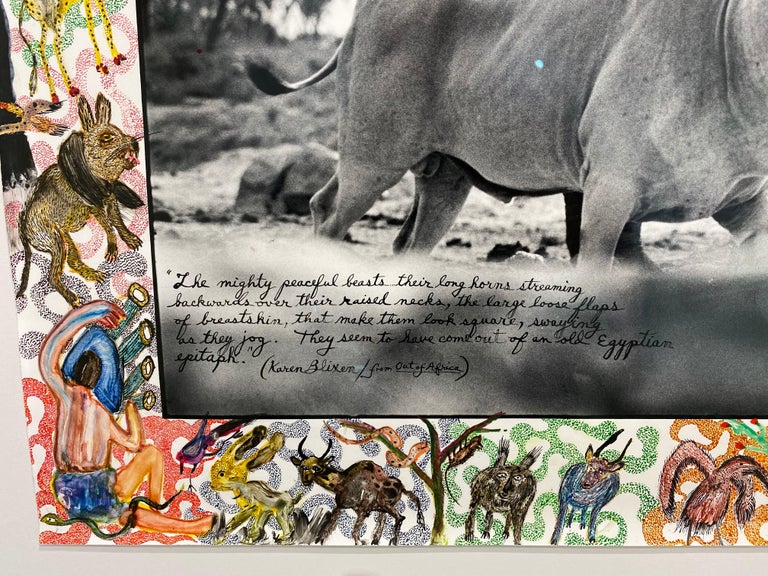 "The mighty peaceful beasts their long horns streaming
backwards over their raised necks, the large loose flaps
of breastskin, that make them look square, swaying
as they jog. They seem to have come out of an old Egyptian
epitaph." (Karen Blixen/from Out of Africa)